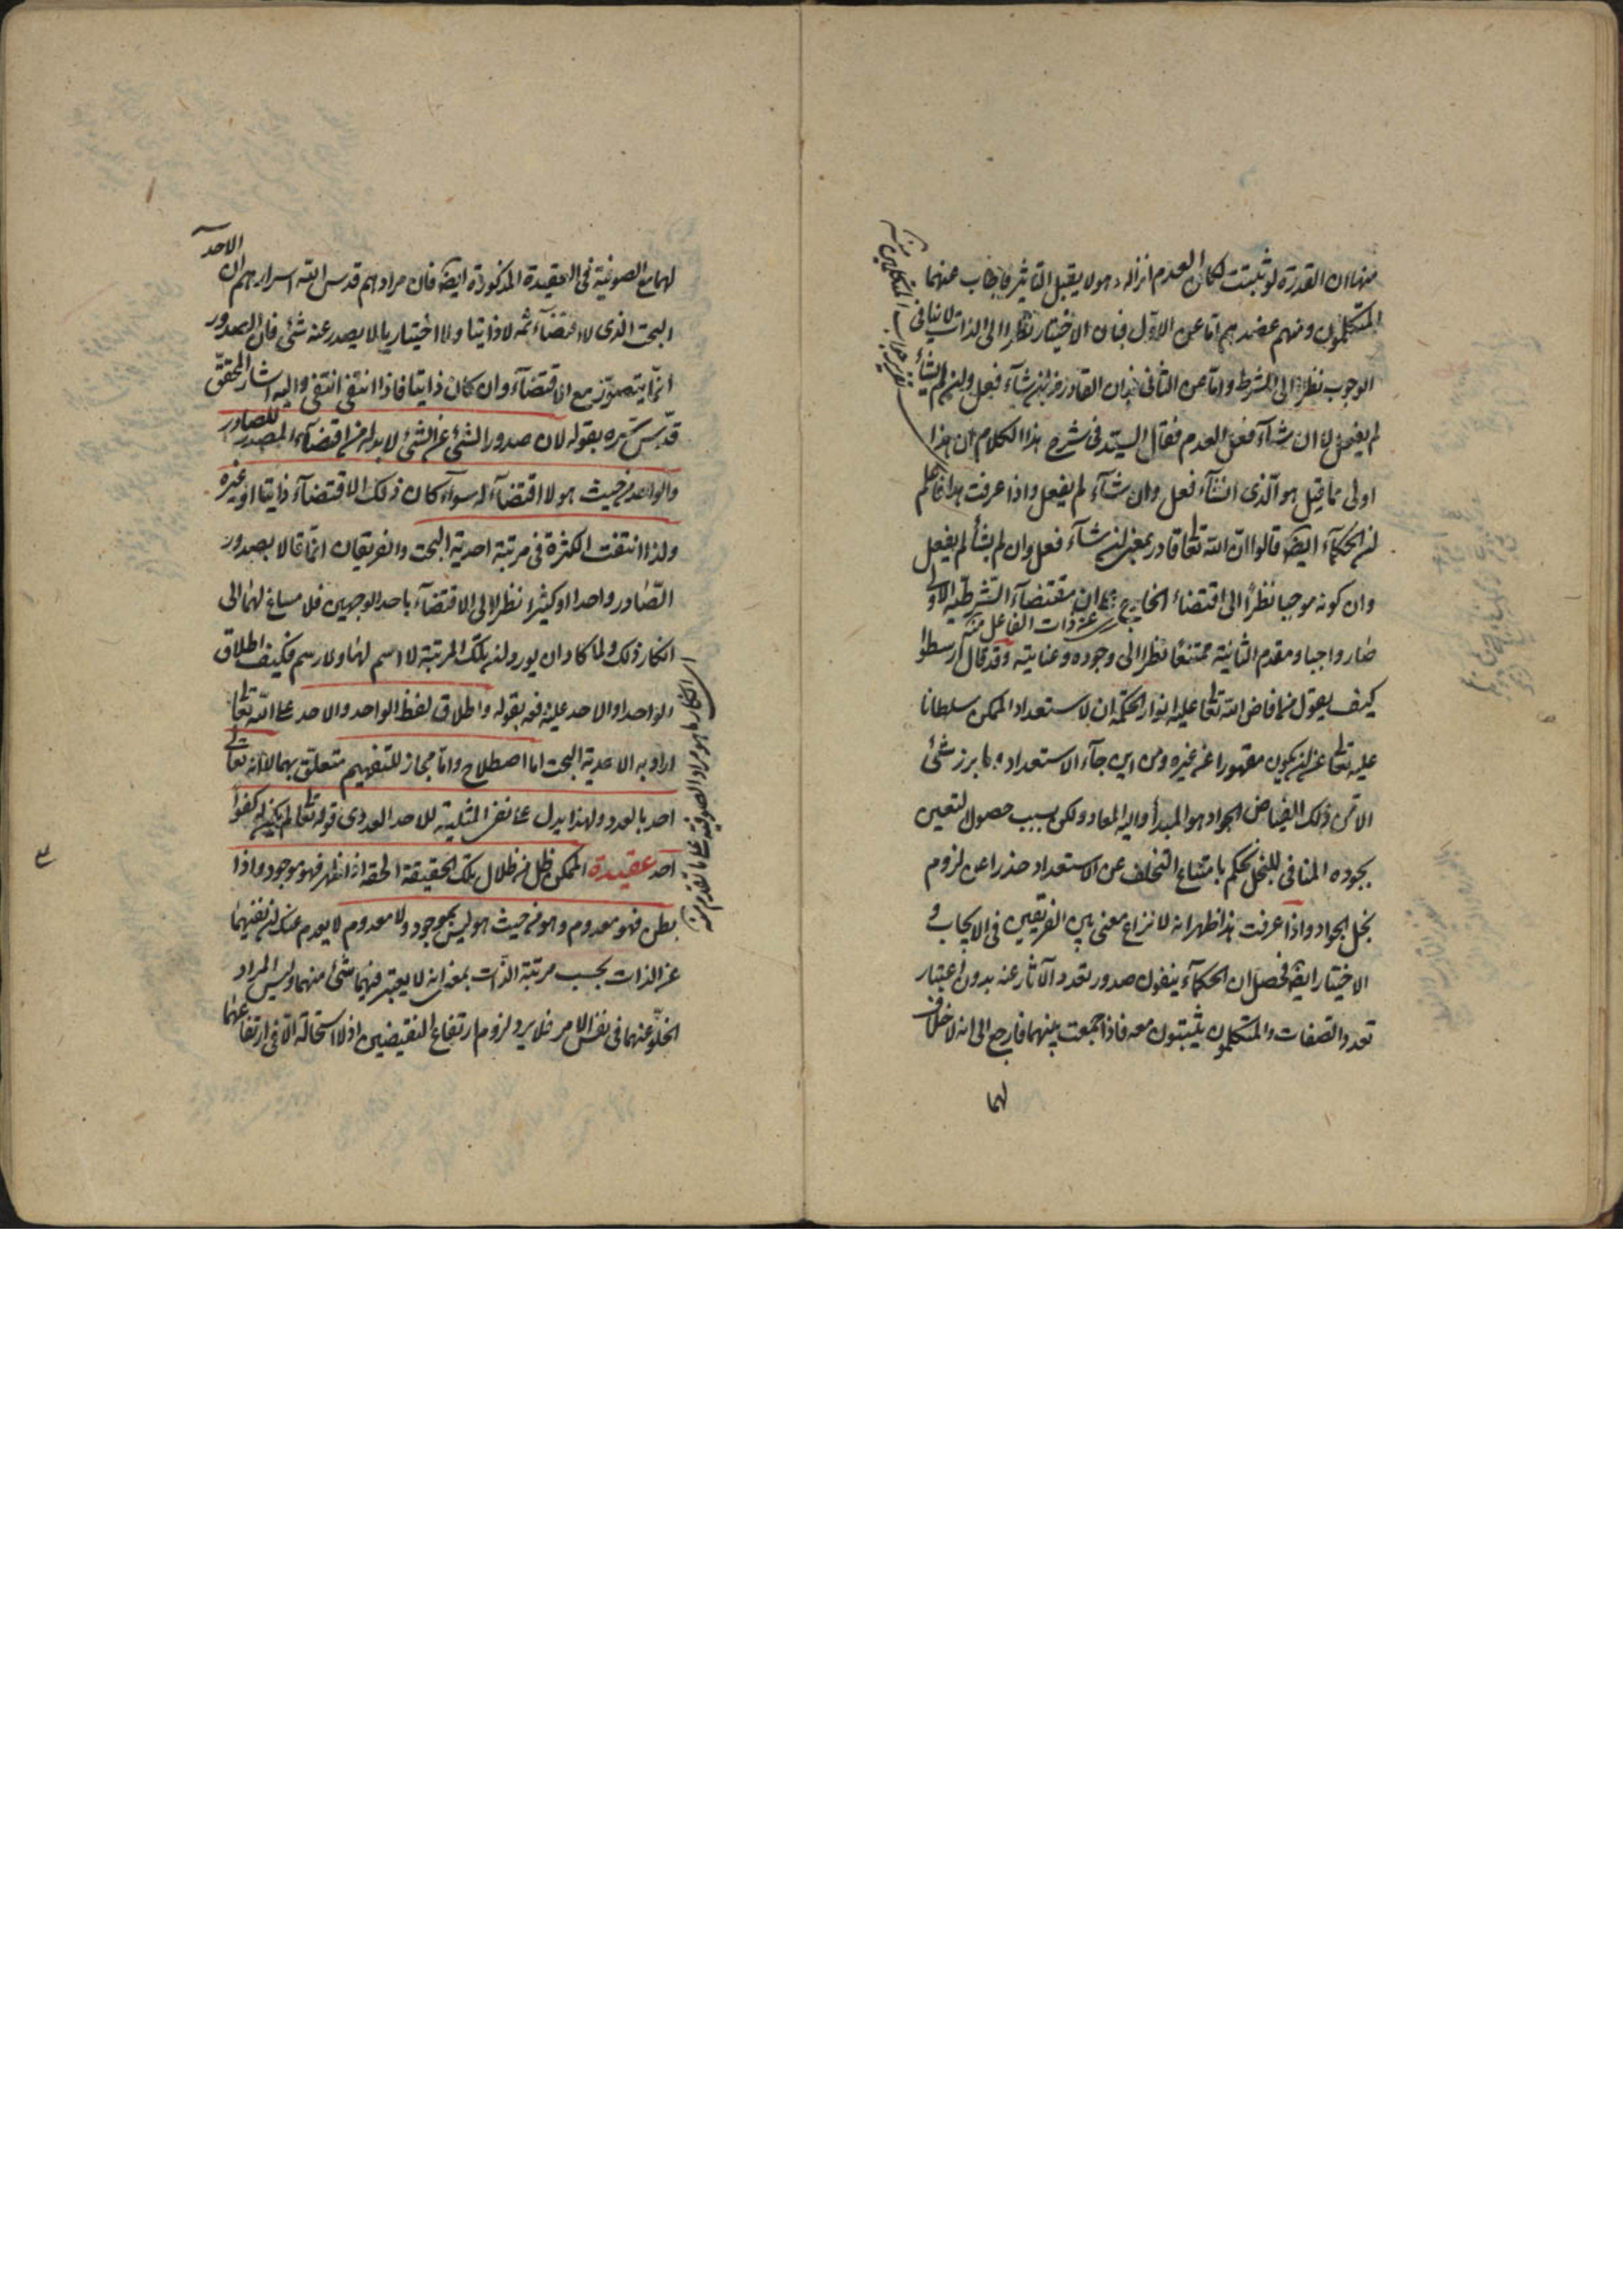 منها ان القدرة لو ثبتت لكان العدم اثراله وهو لا يقبل التأثير فاجاب عنهما
المتكلمون ومنهم عضدهم اما عن الاول فبان الاختيار نظرا الى الذات لا ينافى
الوجوب نظرا الى الشرط واما عن الثانى فبان القادر من ان شآء فعل وان لم يشأ
لم يفعل لا ان شآء فعل العدم فقال السيد فى شرح هذا الكلام ان هذا
اولى مما قيل هو الذى ان شآء فعل وان شآء لم يفعل واذا عرفت هذا فاعلم
ان الحكمآء ايضا قالوا ان الله تعالى قادر بمعنى ان شآء فعل وان لم يشأ لم يفعل
وان كونه موجبا نظرا الى اقتضاء الخارج مقتضآء الشرطية الاولى
عن ذات الفاعل منه
صار واجبا ومقدم الثانية ممتنعا نظرا الى وجوده وعنايته وقد قال ارسطوا
كيف يعقل من افاض الله تعالى عليه انوار الحكمة ان لاستعداد الممكن سلطانا
عليه تعالى عن ان يكون مقهورا عن غيره ومن اين جآء الاستعداد وما برز شئ
الا من ذلك الفياض الجواد هو المبدأ واليه المعاد ولكن بسبب حصول التعين
بجوده المنافى للبخل يحكم بامتناع التخلف عن الاستعداد حذرا عن لزوم
بخل الجواد واذا عرفت هذا ظهر انه لا نزاع معنى بين الفريقين فى الايجاب و
الاختيار ايضا فحصل ان الحكمآء ينفون صدور تعدد الآثار عنه بدون اعتبار
تعدد الصفات والمتكلمون يثبتون معه فاذا جمعت بينهما فارجع الى انه لا خلاف
لهما
لهما مع الصوفية فى العقيدة المذكورة ايضا فان مرادهم قدس الله اسرارهم ان الاحد
البحت الذى لا اقتضآء ثمه لا ذاتيا ولا اختياريا لا يصدر عنه شئ فان الصدور
انما يتصور مع الاقتضآء وان كان ذاتيا فاذا انتفى انتفى واليه اشار المحقق
قدس سره بقوله لان صدور الشئ عن الشئ لا بد له من اقتضآء المصدر للصادر
والواحد من حيث هو لا اقتضآء له سوآء كان ذلك الاقتضآء ذاتيا او غيره
ولذا انتفت الكثرة فى مرتبة احدية البحت والفريقان انما قالا بصدور
الصادر واحدا او كثيرا نظرا الى الاقتضآء باحد الوجهين فلا مساغ لهما الى
انكار ذلك ولما كاد ان يورد ان تلك المرتبة لا اسم لها ولا رسم فكيف اطلاق
الواحد او الاحد عليه فعه بقوله واطلاق لفظ الواحد والاحد على الله تعالى
اراد به الاحدية البحت اما اصطلاح واما مجاز للتفهيم متعلق بهما لا انه تعالى
احد بالعدد ولهذا يدل على نفى المثلية للاحد العددى قوله تعالى لم يكن له كفوا
احد عقيدة الممكن ظل من ظلال تلك الحقيقة الحقة اذا ظهر فهو موجود واذا
بطن فهو معدوم وهو من حيث هو ليس بموجود ولا معدوم لا بعدم عنك ان نفيهما
عن الذات بحسب مرتبة الذات بمعنى انه لا يعتبر فيهما شئ منهما وليس المراد
الخلو عنهما فى نفس الامر فلا يرد لزوم ارتفاع النقيضين اذ لا استحالة الا فى ارتفاعهما
اى انكار ما هو مراد الصوفية على ما تقدم منه